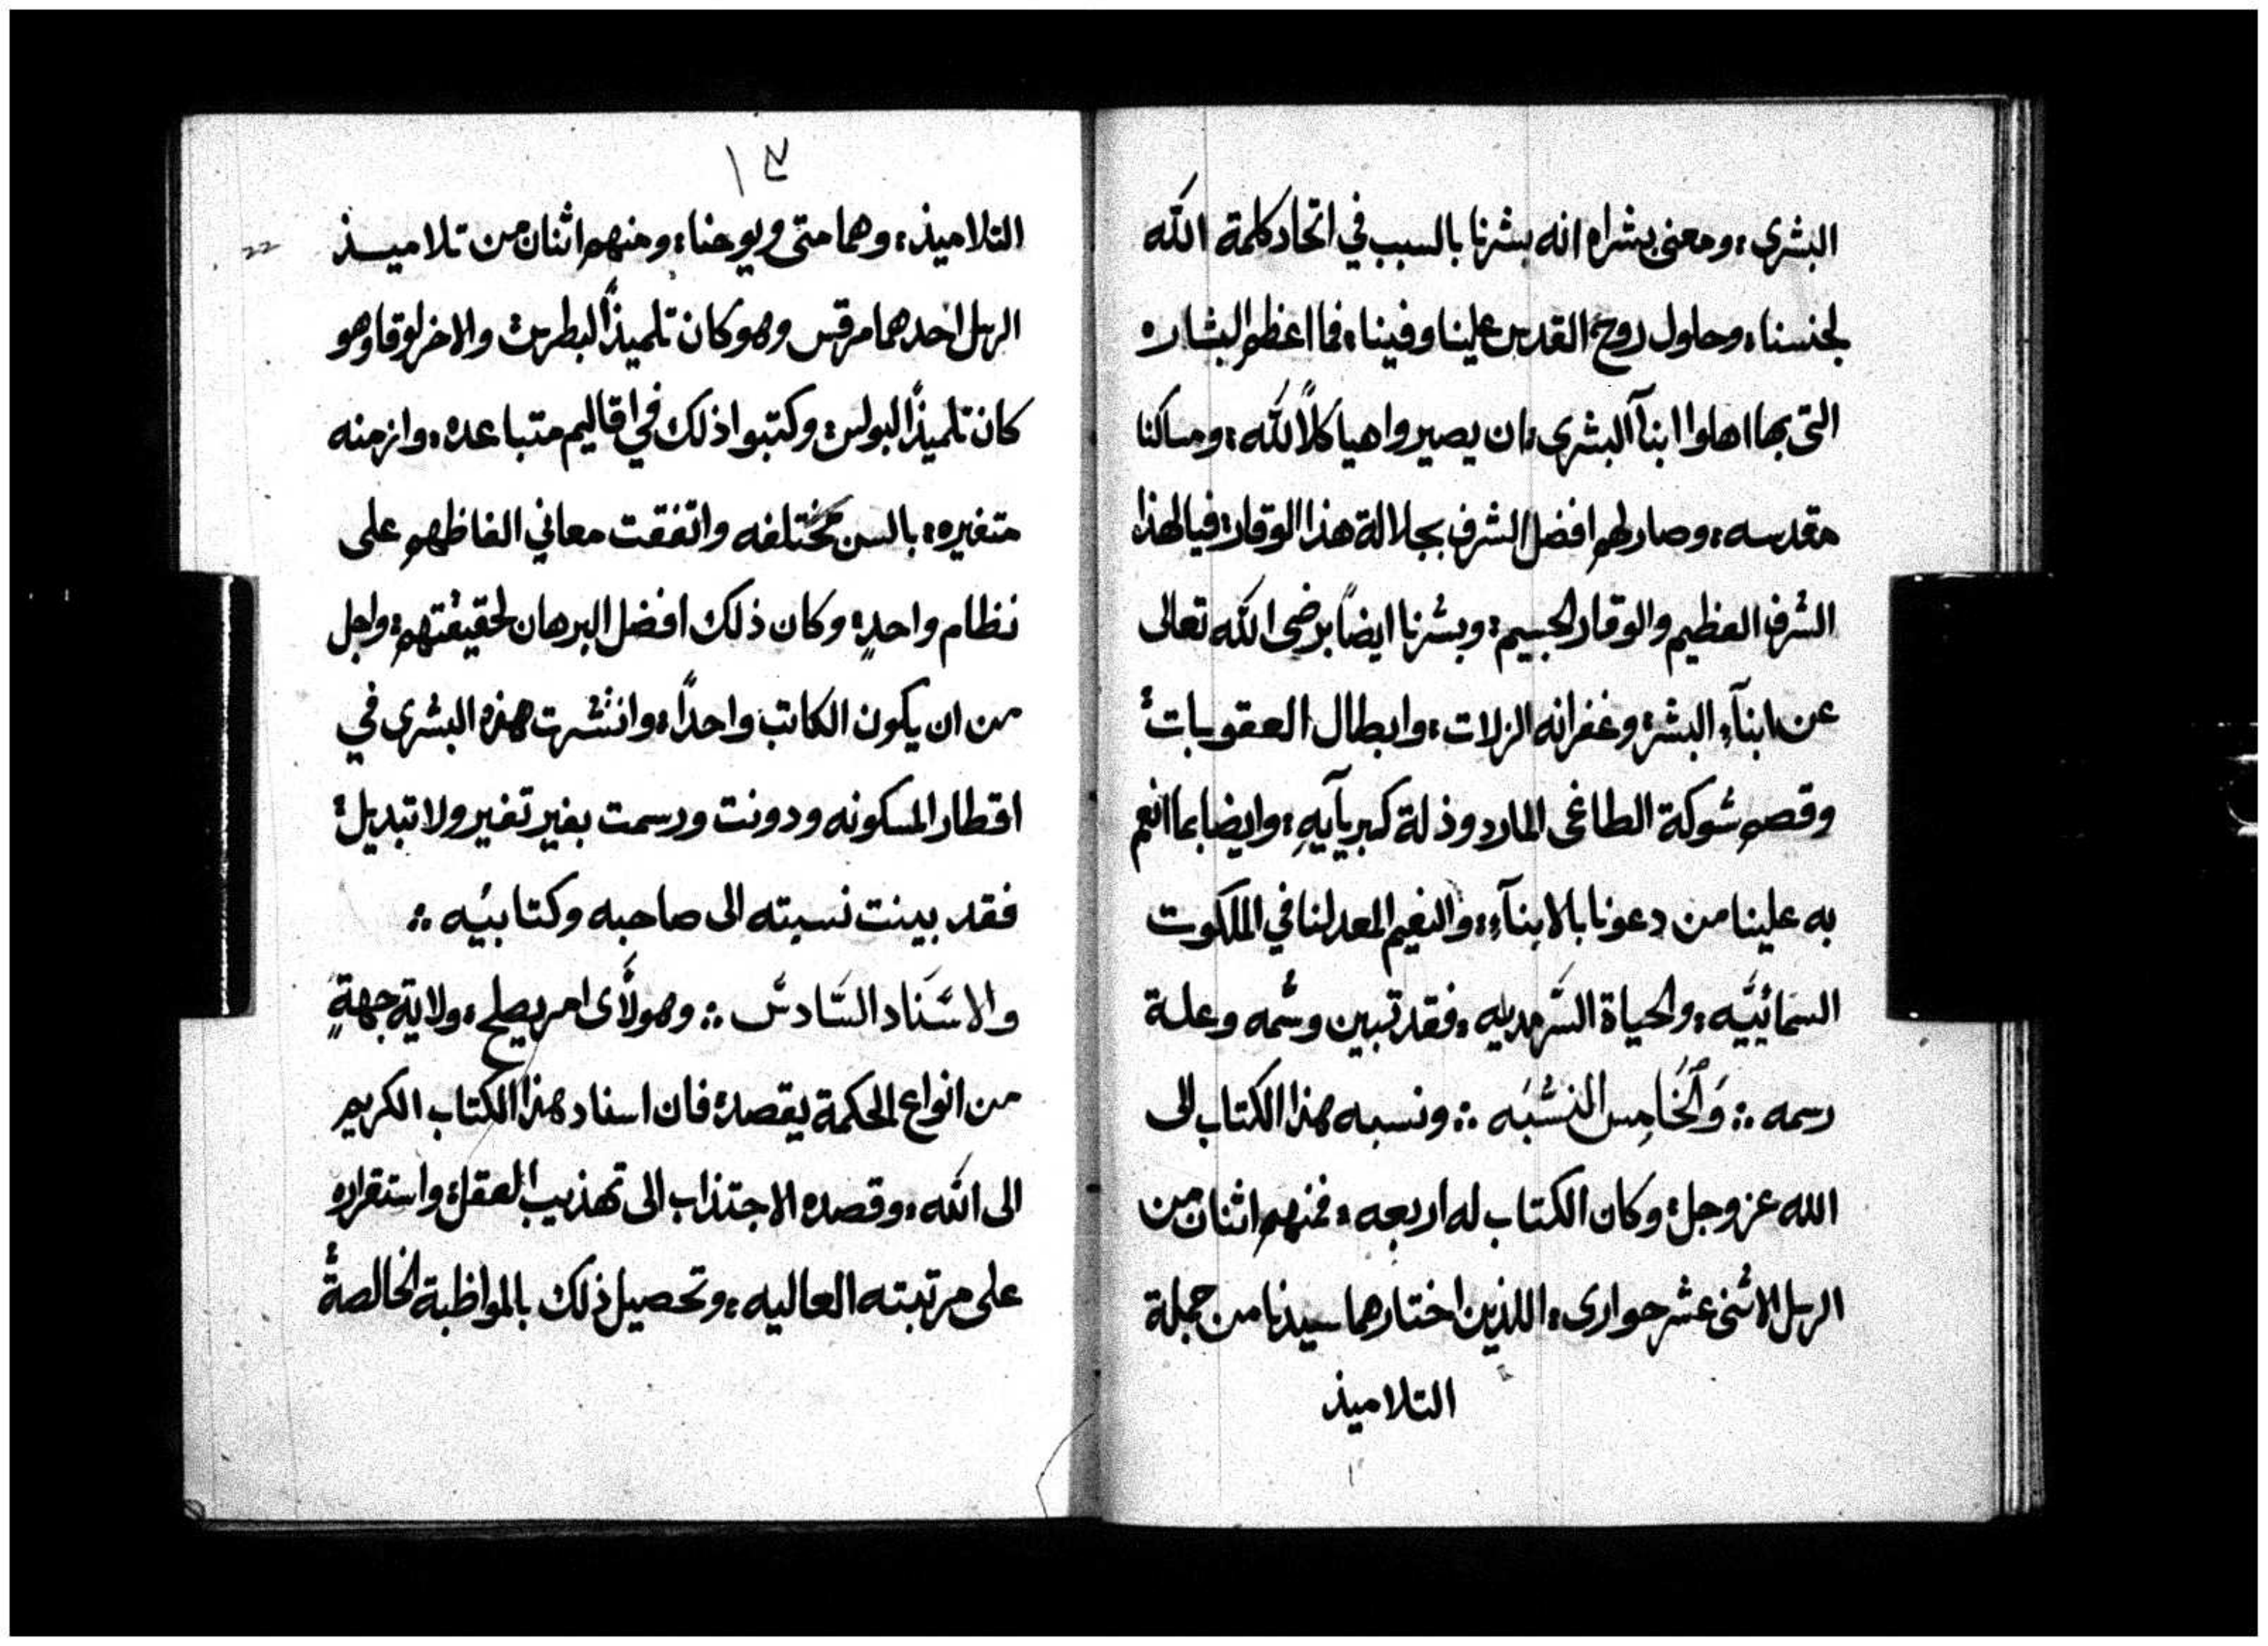 البشرى ؛ ومعنى بشراه انه بشرنا بالسبب في اتحاد كلمة الله
لجنسنا ؛ وحلول روح القدس علينا وفينا ؛ فما اعظم البشاره
التى بها اهلوا ابنآ البشرى ؛ ان يصيروا هياكلاً لله ؛ ومساكنا
مقدسه ؛ وصار لهم افضل الشرف بجلالة هذا الوقار ؛ فيا لهذا
الشرف العظيم والوقار الجسيم ؛ وبشرنا ايضاً برضى الله تعالى
عن ابنآء البشر ؛ وغفرانه الزلات ؛ وابطال العقوبات ؛
وقصم شوكة الطاغى المارد وذلة كبريآيهِ ؛ وايضا بما انعم
به علينا من دعونا بالابنآء ؛ والنعيم المعد لنا في الملكوت
السمائييَّه ؛ والحياة السَّرمديه ؛ فقد تبين وسْمه وعلة
رسمه ؞ وَالخَامِس النسْبَه ؞ ونسبه هذا الكتاب الى
الله عز وجل ؛ وكان الكتاب له اربعه ؛ فمنهم اثنان من
الرسل الاثنى عشر حوارى ؛ اللذين اختارهما سيدنا من جملة
التلاميذ
١٣
22
التلاميذ ؛ وهما متى ويوحنا ؛ ومنهم اثنان من تلاميذ
الرسل احدهما مرقس وهو كان تلميذاً لبطرس والاخر لوقا وهو
كان تلميذاً لبولس ؛ وكتبوا ذلك في اقاليم متباعده ؛ وازمنه
متغيره ؛ بالسن مختلفه واتفقت معاني الفاظهم على
نظام واحدٍ ؛ وكان ذلك افضل البرهان لحقيقتهم ؛ واجل
من ان يكون الكاتب واحداً ؛ وانتشرت هذه البشرى في
اقطار المسكونه ودونت ورسمت بغير تغير ولا تبديل ؛
فقد بينت نسبته الى صاحبه وكتابيُه ؞
والاسْنَاد السَّادسْ ؞ وهو لأى امر يصلح ؛ ولاية جهةٍ
من انواع الحكمة يقصد ؛ فان اسناد هذا الكتاب الكريم
الى الله ؛ وقصده الاجتذاب الى تهذيب العقل ؛ واستقراره
على مرتبته العاليه ؛ وتحصيل ذلك بالمواظبة الخالصة ؛